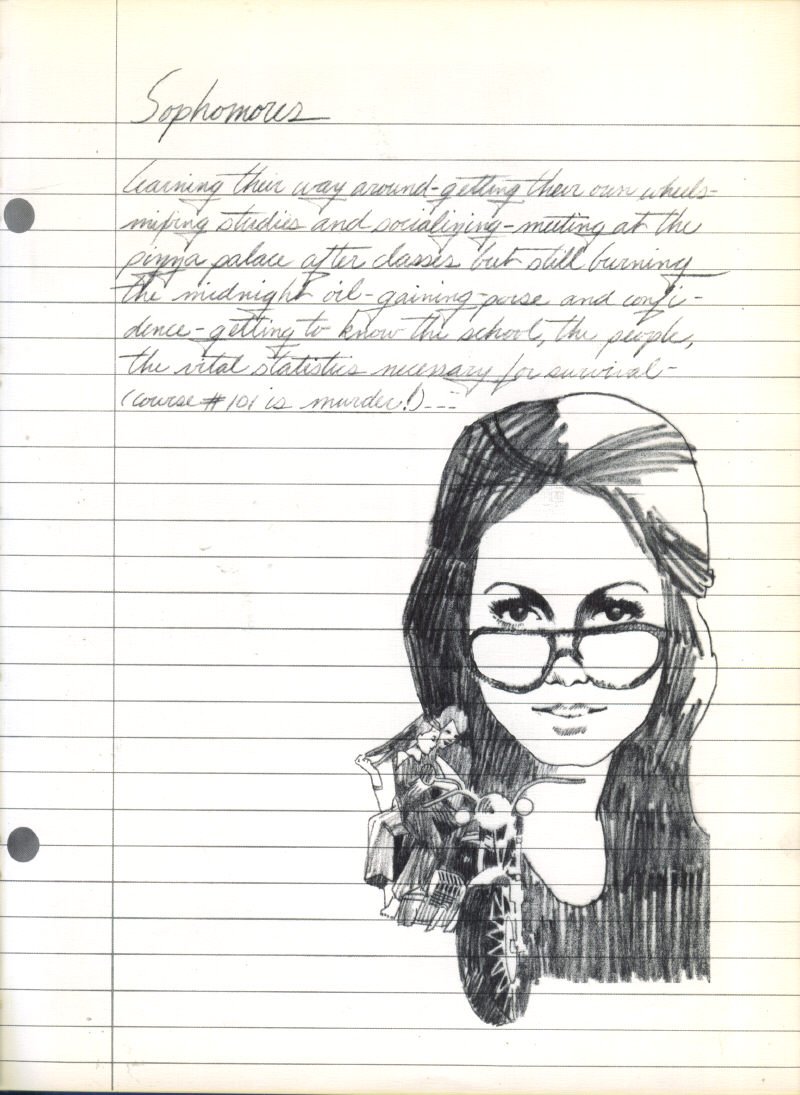 Sophomores
learning their way around-getting their own wheels-
mixing studies and socializing-meeting at the
pizza palace after classes but still burning
the midnight oil-gaining-poise and confi-
dence-getting to know the school, the people,
the vital statistics necessary for survival-
(course #101 is murder!)---